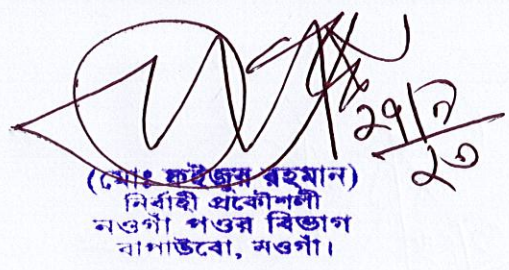 ২৭/৭
২০
(মোঃ ফইজুর রহমান)
নির্বাহী প্রকৌশলী
নওগাঁ পওর বিভাগ
বাপাউবো, নওগাঁ।